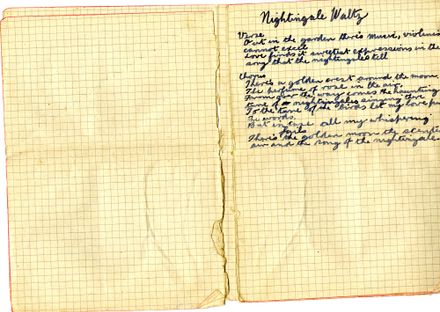 Nightingale Waltz
Verse
Out in the garden there's music, violins
cannot excell
Love finds it sweetest expressions in the
song that the nightingales tell
Chorus
There's a golden crest around the moon
The perfume of rose in the air.
From over the way comes the haunting
tune of a nightingales singing there
To the tune of the birds let my love
The words.
But in all my whispering
fails
There's the golden moon the
air and the song of the nightingale